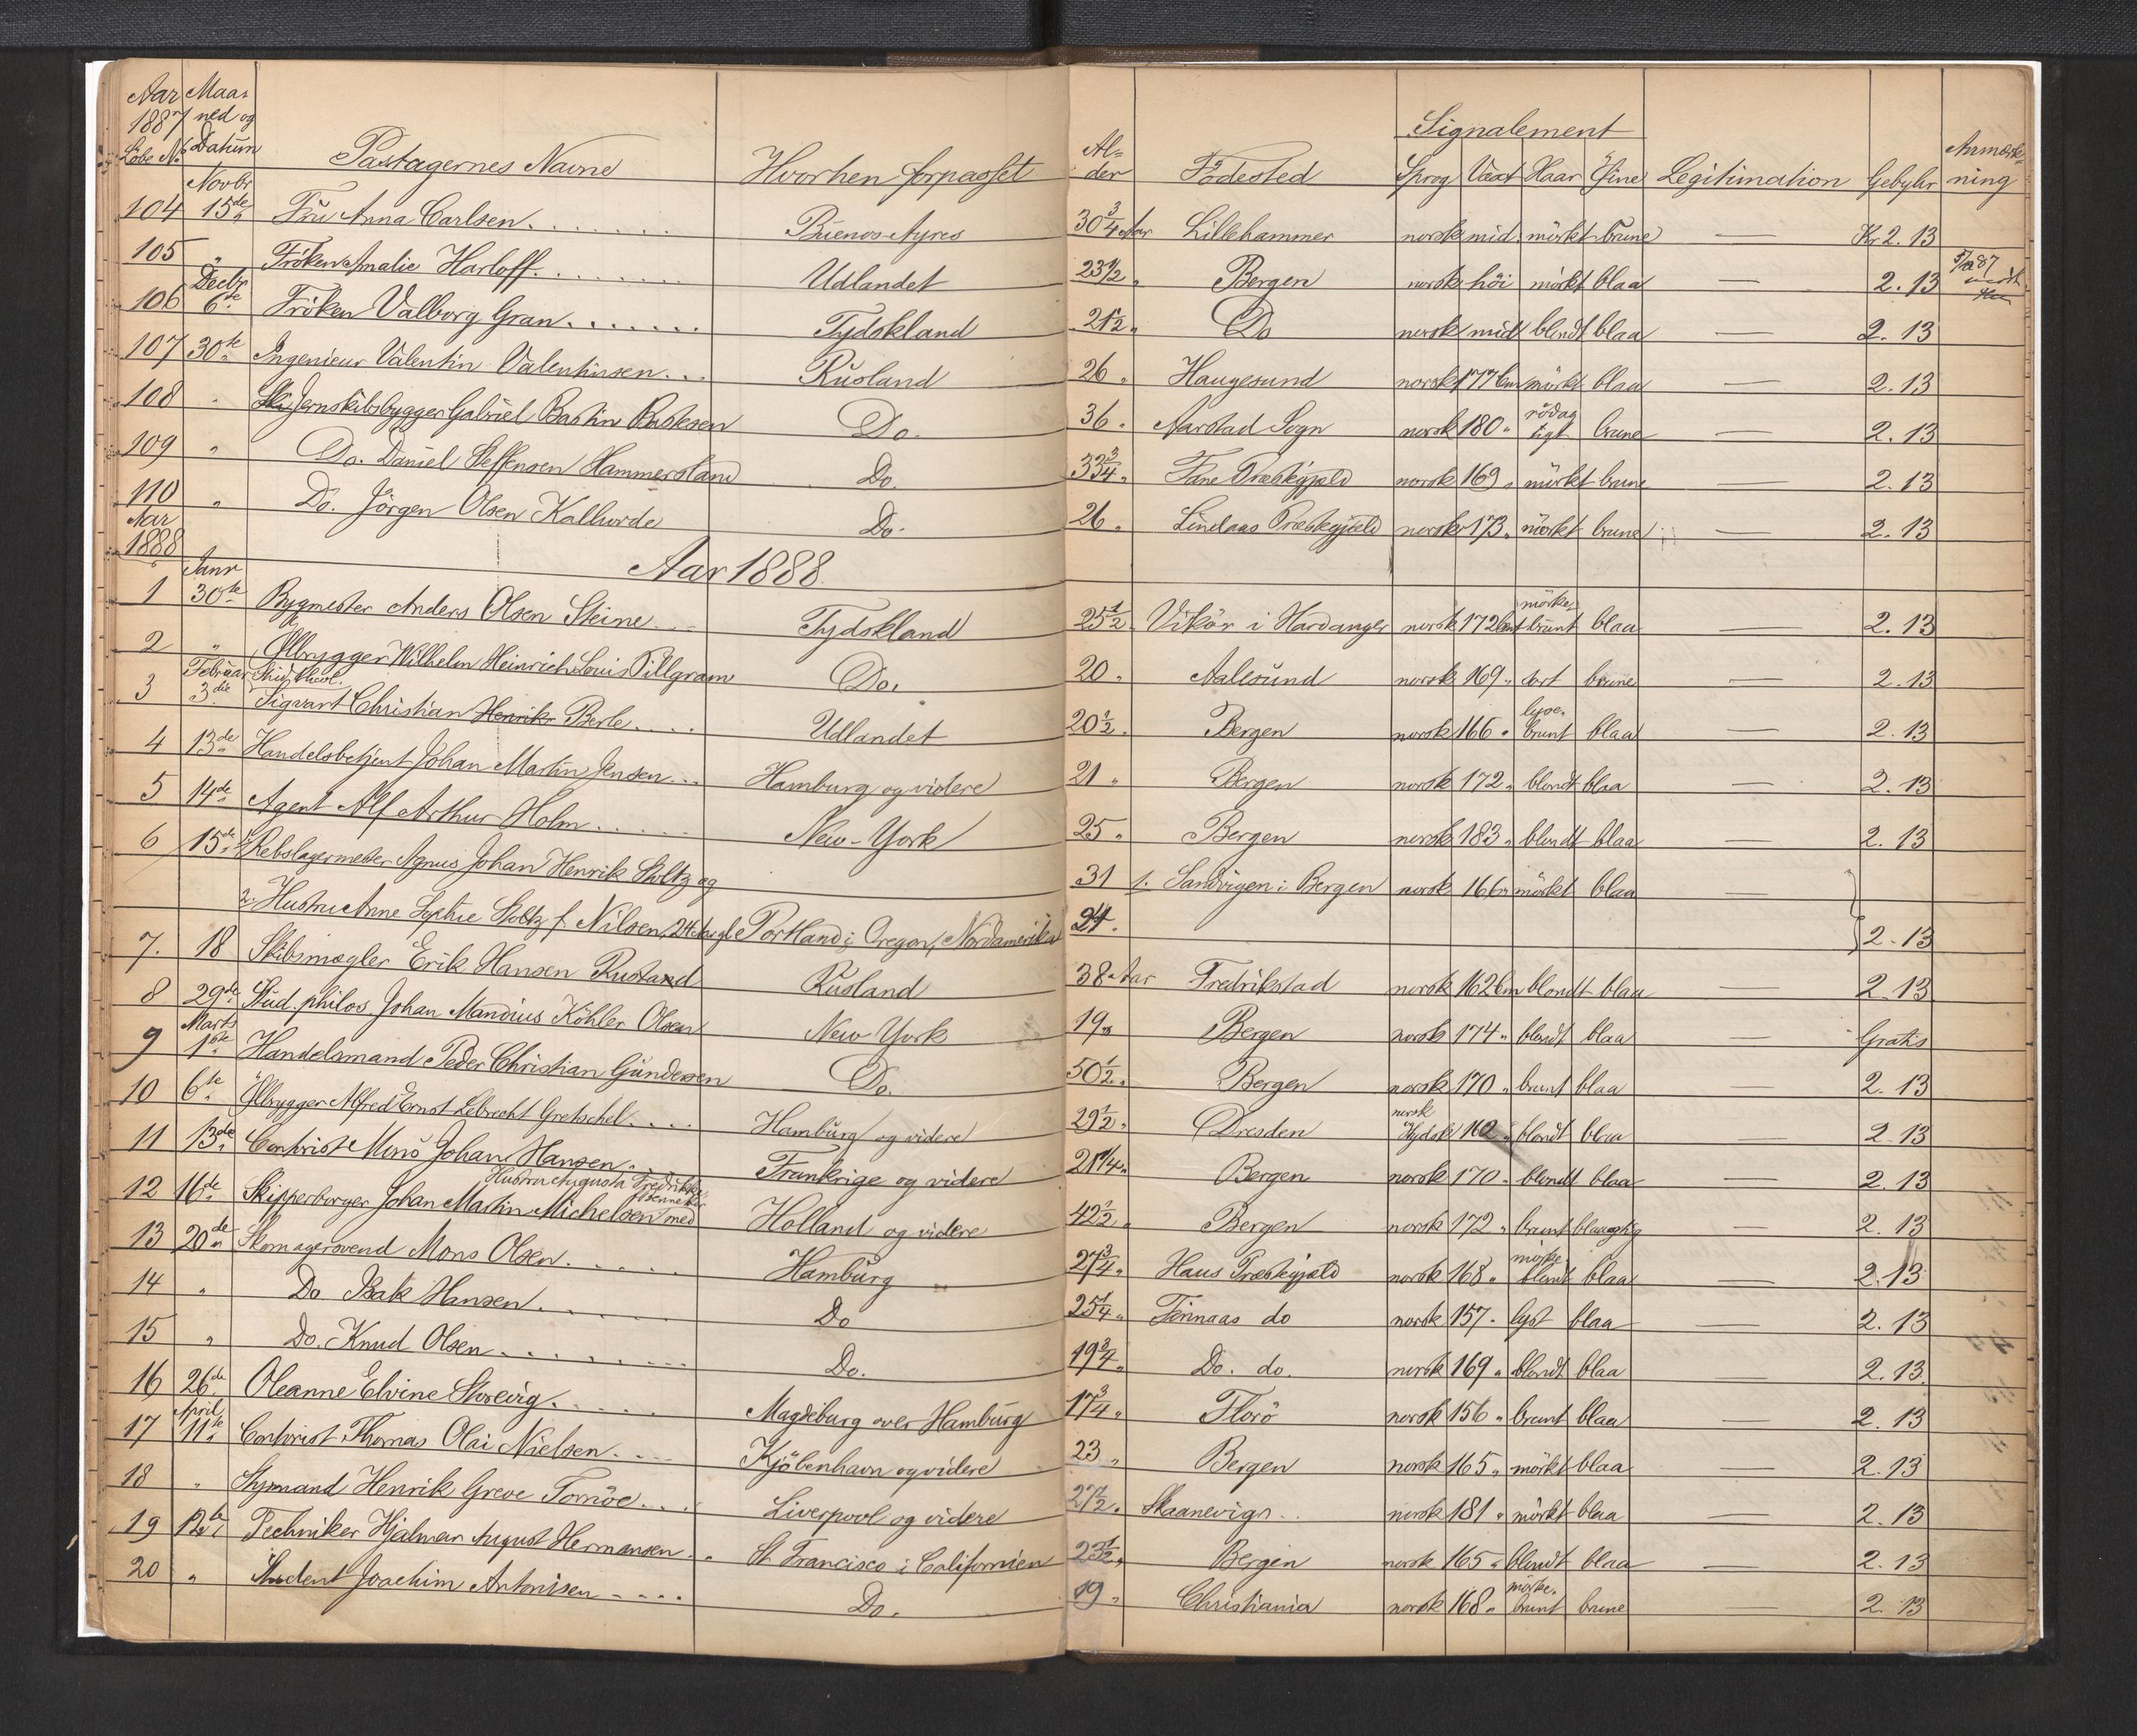 Aar 1887 Löbe No. | Maaned og Datum | Passagernes Navne | Hvorhen forpasset | Alder | Födested | Signalement: Sprog | Væxt | Haar | Öine | Legitimation | Gebyhr | Anmærkning
Novbr
104 | 15de | Fru Anna Carlsen | Buenos-Ayres | 30 3/4 Aar | Lillehammer | norsk | mid. | mörkt | brune | — | Kr 2.13
105 | " | Fröken Amalie Harloff | Udlandet | 23 1/2 " | Bergen | norsk | höi | mörkt | blaa | — | 2.13
Decbr
106 | 6te | Fröken Valborg Gran | Tydskland | 21 1/2 " | Do | norsk | mid | blondt | blaa | — | 2.13
107 | 30te | Ingenieur Valentin Valentinsen | Rusland | 26 " | Haugesund | norsk | 177 Cm | mörkt | blaa | — | 2.13
108 | " | Jernskibsbygger Gabriel Bastin | Do. | 36 " | Aarstad Sogn | norsk | 180 " | rödagtigt | brune | — | 2.13
109 | " | Do. Daniel Steffensen Hammersland | Do. | 33 3/4 " | Fane Præstegjæld | norsk | 169 " | mörkt | brune | — | 2.13
110 | " | Do. Jörgen Olsen Kallurde | Do. | 26 " | Lindaas Præstegjæld | norsk | 173 " | mörkt | brune | — | 2.13
Aar 1888
Aar 1888.
Janr
1 | 30te | Bygmester Anders Olsen Steine | Tydskland | 25 1/2 " | Vikör i Hardanger | norsk | 172 Cmt | mörkebrunt | blaa | — | 2.13
2 | " | Ølbrygger Wilhelm Heinrich Louis Pillgram | Do. | 20 " | Aalesund | norsk | 169 " | sort | brune | — | 2.13
Februar
3 | 3die | Stud. theol. Sigvart Christian Henrik Berle | Udlandet | 20 1/2 " | Bergen | norsk | 166 " | lysebrunt | blaa | — | 2.13
4 | 13de | Handelsbetjent Johan Martin Jensen | Hamburg og videre | 21 " | Bergen | norsk | 172 " | blondt | blaa | — | 2.13
5 | 14de | Agent Alf Arthur Holm | New-York | 25 " | Bergen | norsk | 183 " | blondt | blaa | — | 2.13
6 | 15de | 1. Rebslagermester Agnus Johan Henrik Stoltz og | 31 | 1. Sandvigen i Bergen | norsk | 166 " | mörkt | blaa | —
2. Hustru Anne Sophie Stoltz f. Nilsen, 24 Aar gl | Portland i Oregon, Nordamerika | 24 " | 2.13
7. | 18 | Skibsmægler Erik Hansen Rustand | Rusland | 38 Aar | Fredrikstad | norsk | 162 Cm | blondt | blaa | — | 2.13
8 | 29de | Stud. philos. Johan Mandius Köhler Olsen | New York | 19 " | Bergen | norsk | 174 " | blondt | blaa | — | Gratis
Marts
9 | 1ste | Handelsmand Peder Christian Gundersen | Do. | 50 1/2 " | Bergen | norsk | 170 " | brunt | blaa | — | 2.13
10 | 6te | Ölbrygger Alfred Ernst Lebrecht Gretschel | Hamburg og videre | 29 1/2 " | Dresden | norsk tydsk | 160 " | blondt | blaa | — | 2.13
11 | 13de | Contorist Mons Johan Hansen | Frankrige og videre | 21 1/4 " | Bergen | norsk | 170 " | blondt | blaa | — | 2.13
12 | 16de | Skipperborger Johan Martin Michelsen med Hustru Augusta Fredrikke | Holland og videre | 42 1/2 " | Bergen | norsk | 172 " | brunt | blaaagtig | — | 2.13
13 | 20de | Skomagersvend Mons Olsen | Hamburg | 27 3/4 " | Haus Præstegjæld | norsk | 168 " | mörkeblondt | blaa | — | 2.13
14 | " | Do Isak Hansen | Do | 25 1/4 " | Finnaas do | norsk | 157 " | lyst | blaa | — | 2.13
15 | " | Do. Knud Olsen | Do. | 19 3/4 " | Do. do. | norsk | 169 " | blondt | blaa | — | 2.13
16 | 26de | Oleanne Elvine Storevig | Magdeburg over Hamburg | 17 3/4 " | Florö | norsk | 156 " | brunt | blaa | — | 2.13
April
17 | 11te | Contorist Thomas Olai Nielsen | Kjöbenhavn og videre | 23 " | Bergen | norsk | 165 " | mörkt | blaa | — | 2.13
18 | " | Styrmand Henrik Greve Tornöe | Liverpool og videre | 27 1/2 " | Skaanevigs | norsk | 181 " | mörkt | blaa | — | 2.13
19 | 12te | Techniker Hjalmar August Hermansen | St. Francisco i Californien | 23 1/2 " | Bergen | norsk | 165 " | blondt | blaa | — | 2.13
20 | " | Student Joachim Antonisen | Do. | 19 " | Christiania | norsk | 168 " | mörkebrunt | brune | — | 2.13